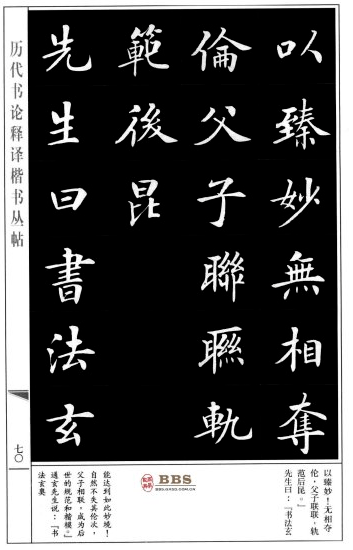 以臻妙無相奪
倫父子聯聯軌
範後昆
先生曰書法玄
历代书论释译楷书丛帖
七〇
以臻妙！无相夺
伦，父子联联，轨
范后昆。”
先生曰：“书法玄
BBS
BBS.GXSD.COM.CN
能达到如此妙境！
自然不失其伦次，
父子相联，成为后
世的规范和楷模。”
通玄先生说：“书
法玄奥